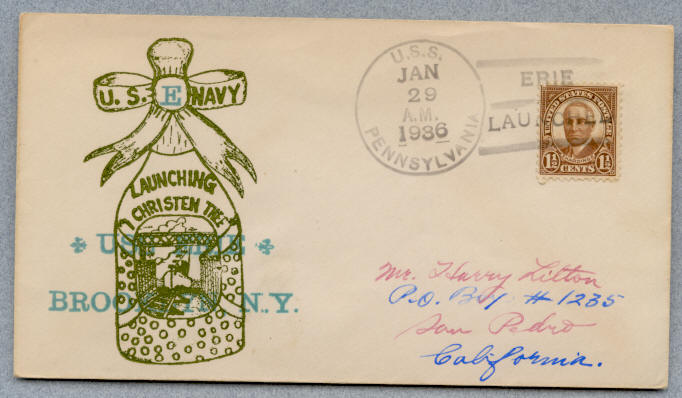 U. S. E NAVY
LAUNCHING
I CHRISTEN THEE
USS ERIE
BROOKLYN N.Y.
U.S.S.
JAN
29
A.M.
1936
PENNSYLVANIA
ERIE
LAUNCHED
UNITED STATES POSTAGE
HARDING
1½ CENTS 1½
Mr. Harry Litton
P.O. Box # 1235
San Pedro
California.